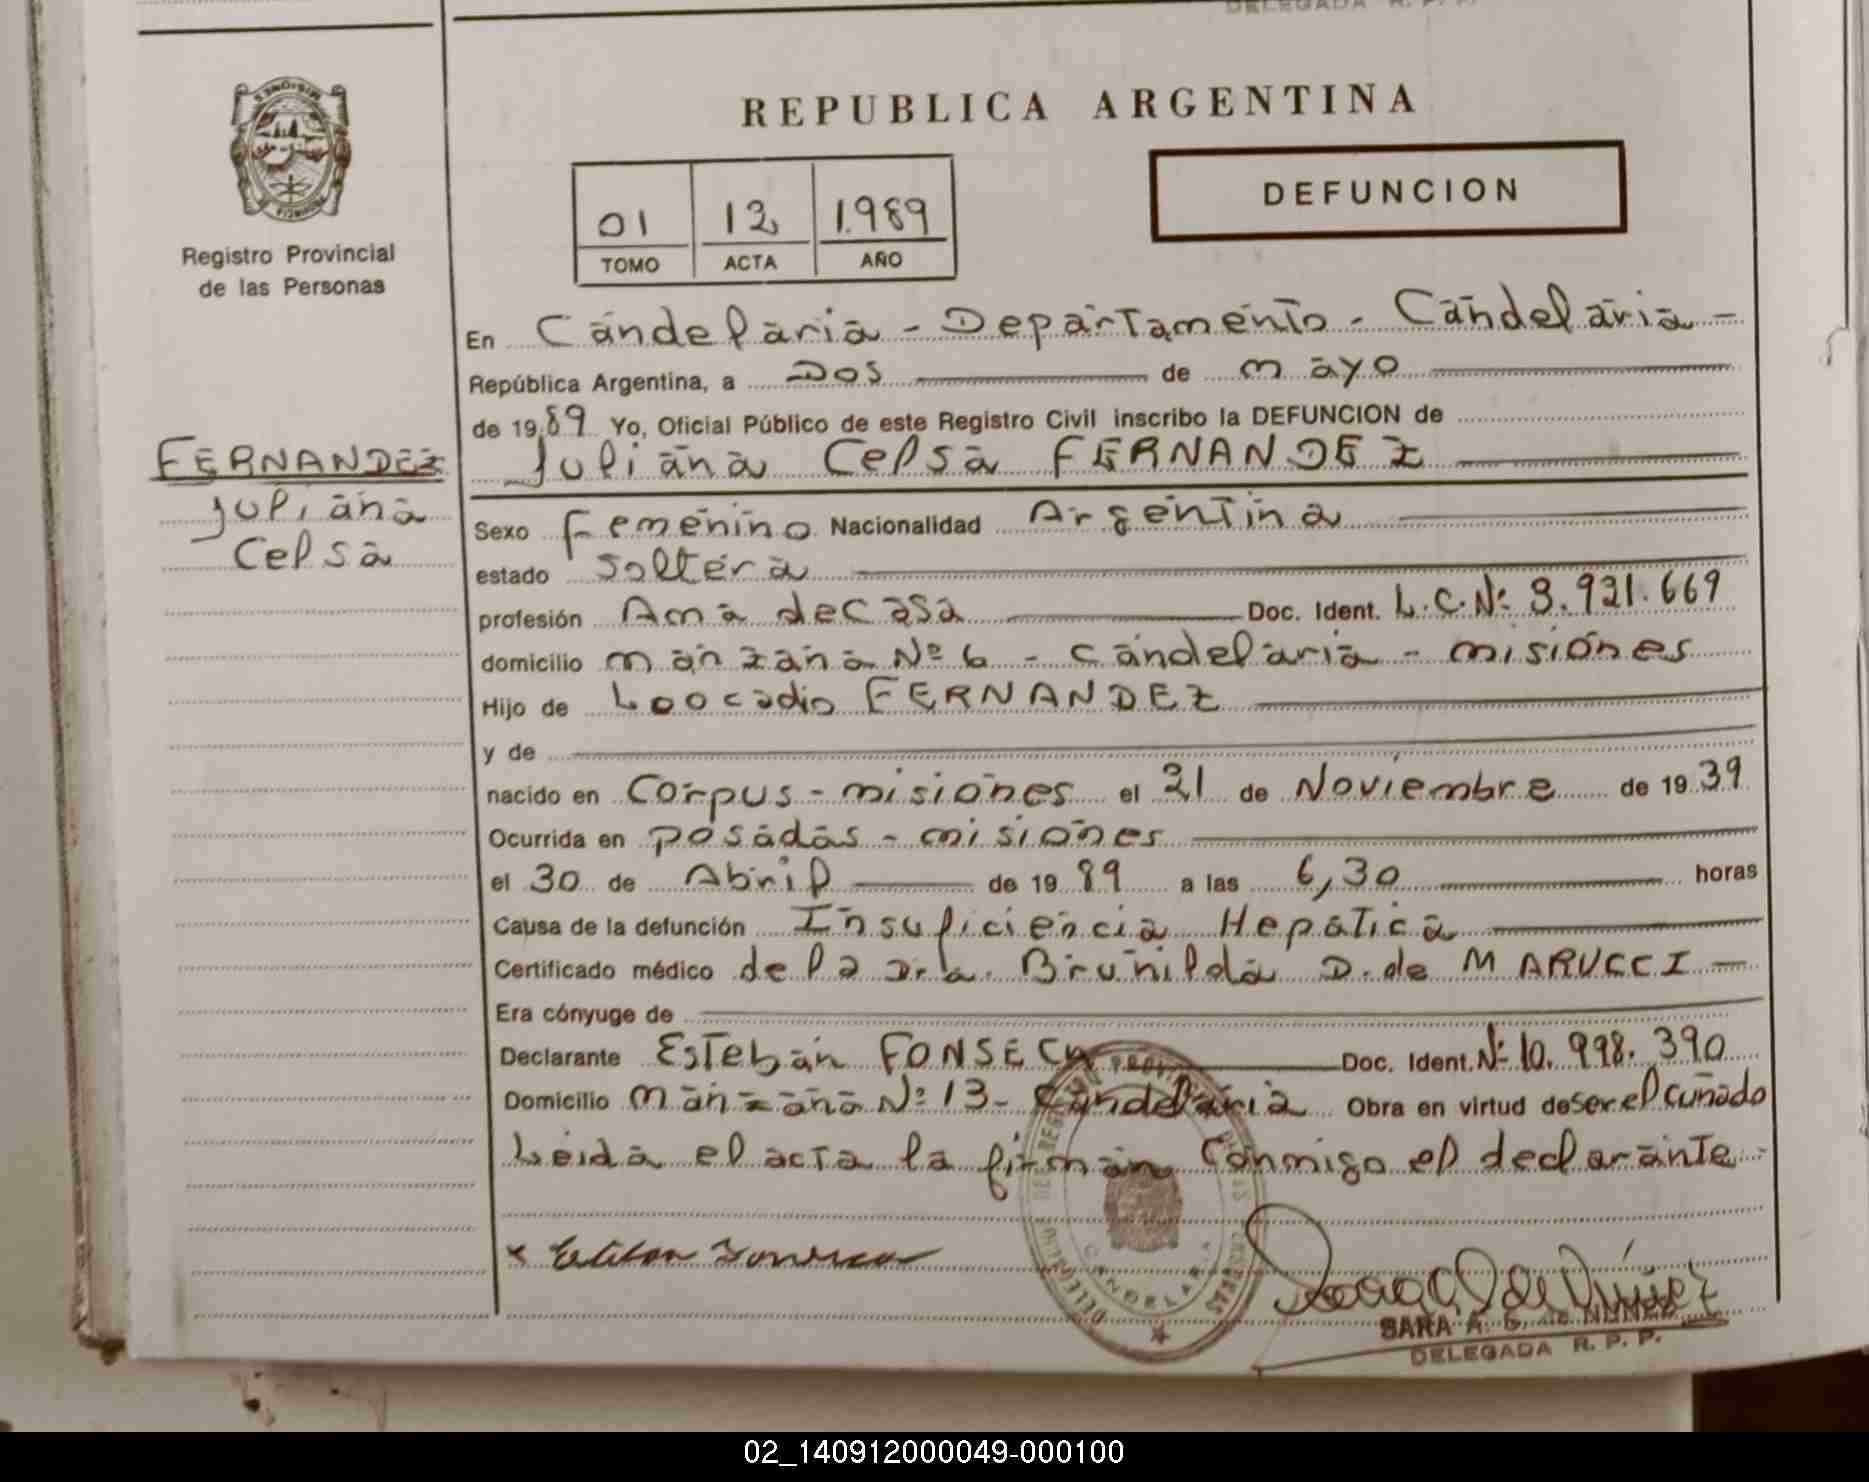 REPUBLICA ARGENTINA
Registro Provincial
de las Personas
01 12 1989
TOMO ACTA AÑO
DEFUNCION
FERNANDEZ
Juliana
Celsa
En Candelaria - Departamento - Candelaria -
República Argentina, a Dos de mayo
de 1989 Yo, Oficial Público de este Registro Civil inscribo la DEFUNCION de
Juliana Celsa FERNANDEZ
Sexo femenino Nacionalidad Argentina
estado soltera
profesión Ama de casa Doc. Ident. L.C.Nº 3.921.669
domicilio manzana Nº 6 - candelaria - misiones
Hijo de Loocadio FERNANDEZ
y de
nacido en Corpus - misiones el 21 de Noviembre de 1939
Ocurrida en posadas - misiones
el 30 de Abril de 1989 a las 6,30 horas
Causa de la defunción Insuficiencia Hepatica
Certificado médico de la Dra. Brunilda D. de MARUCCI -
Era cónyuge de
Declarante Esteban FONSECA Doc. Ident. Nº 10.998.390
Domicilio manzana Nº 13 - Candelaria Obra en virtud de ser el cuñado
Leida el acta la firman conmigo el declarante -
x Esteban Fonseca
CANDELARIA
SARA A. G. de NUÑEZ
DELEGADA R. P. P.
02_140912000049-000100